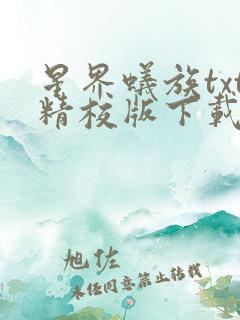 星界蟻族txt
精校版下載
旭佐
未经同意禁止转载